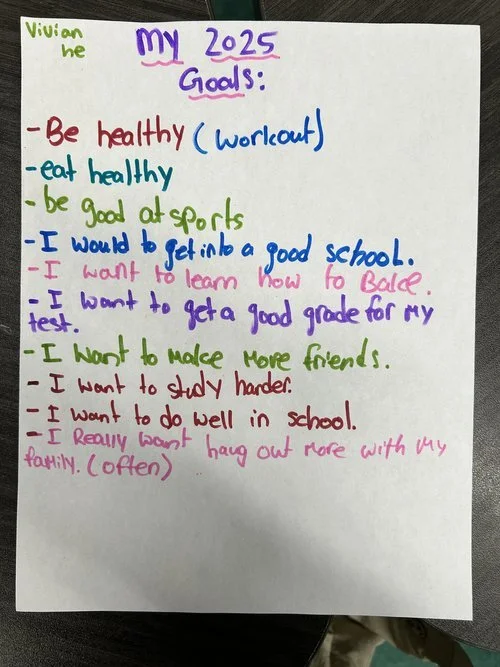 Vivian
he
My 2025
Goals:
-Be healthy (workout)
-eat healthy
-be good at sports
-I would to get into a good school.
-I want to learn how to Bake.
-I want to get a good grade for my
test.
-I want to make more friends.
-I want to study harder.
-I want to do well in school.
-I Really want hang out more with My
family. (often)